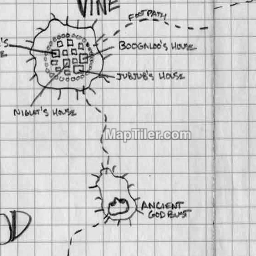 VINE
FOOTPATH
BOOGNLOO'S HOUSE
JUBJUB'S HOUSE
NIGHT'S HOUSE
MapTiler.com
ANCIENT
GOD BUST